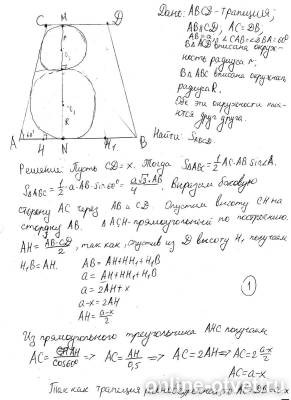 C M D
Дано: ABCD-трапеция;
AB∥CD, AC=DB,
AB=a; ∠CAB=∠DBA=60°
В △ACD вписана окруж-
ность радиуса r,
В △ABC вписана окружность
радиуса R.
Обе эти окружности касают-
ся друг друга.
Найти:
r
O₁
R
A 60° H N H₁ B
Решение: Пусть CD=x. Тогда S△ABC=½AC·AB·sin∠A.
S△ABC=½·a·AB·sin60°=a√3·AB/4. Выразим боковую
сторону AC через AB и CD. Опустим высоту CH на
сторону AB. △ACH-прямоугольный по построению.
AH=AB-CD/2, так как опустив из D высоту H₁ получаем
H₁B=AH. AB=AH+HH₁+H₁B
a=AH+HH₁+H₁B
a=2AH+x
a-x=2AH
AH=a-x/2
1
Из прямоугольного треугольника AHC получаем
AC=AH/cos60° => AC=AH/0,5 => AC=2AH => AC=2a-x/2
AC=a-x
Так как трапеция равнобедренная, то AC=DB=a-x
online-otvet.ru